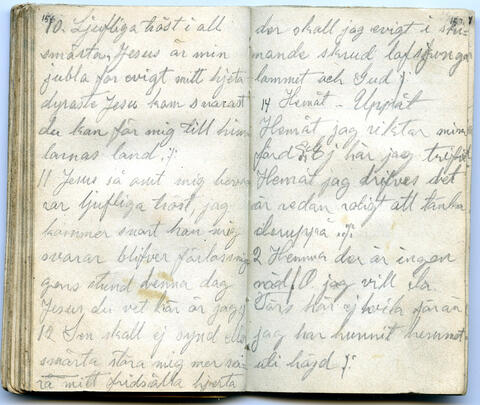 156.
10. Ljufliga tröst i all
smärta, Jesus är min
jubla för evigt mitt hjeta
dyraste Jesus kom svarast
du kan för mig till him
larnas land :/:
11 Jesus så omt mig
rar ljufliga tröst, jag
kommer snart han mig
svarar blifver förlossnin
gens stund denna dag
Jesus du vet här är jag :/:
12 Sen skall ej synd eller
smärta störa mig mer nå
ra mitt fridsälla hjerta
157.
der skall jag evigt i strå
mande skrud lofsjunga
lammet och Gud :/:
14 Hemåt - Uppåt
Hemåt jag riktar min
färd Ej här jag
Hemåt jag drifves det
är redan roligt att tänka
deruppå :/:
2 Hemma der är ingen
nöd, O jag vill
Tårs ej
jag har hunnit hemmet
uti höjd :/: